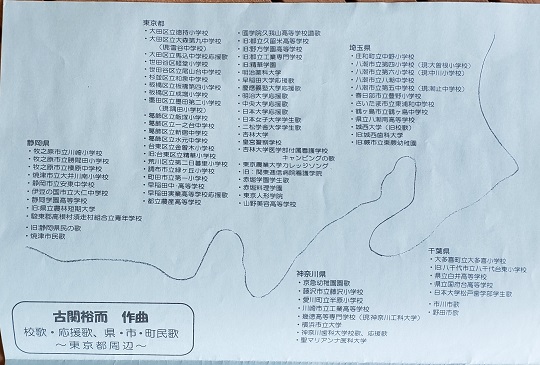 東京都
・大田区立徳持小学校
・大田区立大森第九中学校
(現雪谷中学校)
・大田区立馬込中学校応援歌
・世田谷区経堂小学校
・世田谷区立尾山台中学校
・杉並区立和泉中学校
・板橋区立板橋第四小学校
・板橋区立成増小学校
・墨田区立墨田第二小学校
(現隅田小学校)
・葛飾区立飯塚小学校
・葛飾区立一之台中学校
・葛飾区立新宿中学校
・葛飾区立水元中学校
・台東区立金曽木小学校
・旧:台東区立精華小学校
・荒川区立第二日暮里小学校
・調布市立緑ヶ丘小学校
・町田市立第一小学校
・早稲田中・高等学校
・早稲田実業高等学校応援歌
・都立農産高等学校
・國学院久我山高等学校讃歌
・旧:都立久留米高等学校
・旧:野方学園高等学校
・旧:都立工業専門学校
・旧:精華学園
・明治薬科大学
・早稲田大学応援歌
・慶應義塾大学応援歌
・明治大学応援歌
・中央大学応援歌
・日本大学応援歌
・日本女子大学学生歌
・二松学舎大学学生歌
・杏林大学
・皇宮警察学校
・杏林大学医学部付属看護学校
キャンピングの歌
・東京農業大学カレッジソング
・旧:関東逓信病院看護学院
・赤堀学園学生歌
・赤堀料理学園
・東京人形学院
・山野美容高等学校
埼玉県
・庄和町立中野小学校
・八潮市立第四小学校(現大曽根小学校)
・八潮市立第六小学校(現中川小学校)
・八潮市立八潮中学校
・八潮市立第五中学校(現潮止中学校)
・春日部市立豊野小学校
・さいたま市立東浦和中学校
・鶴ヶ島市立鶴ヶ島中学校
・県立八潮南高等学校
・城西大学(旧校歌)
・旧:城西歯科大学
・旧:蕨市立東蕨幼稚園
静岡県
・牧之原市立川崎小学校
・牧之原市立勝間田小学校
・牧之原市立榛原中学校
・焼津市立大井川南小学校
・静岡市立安東中学校
・伊豆の国市立大仁中学校
・静岡学園高等学校
・旧:県立農林短期大学
・駿東郡高根村須走村組合立青年学校
・旧:静岡県民の歌
・焼津市民歌
千葉県
・大多喜町立大多喜小学校
・旧:八千代市立八千代台東小学校
・県立白井高等学校
・県立国府台高等学校
・日本大学松戸歯学部学生歌
・市川市歌
・野田市歌
神奈川県
・京急幼稚園園歌
・藤沢市立藤沢小学校
・愛川町立半原小学校
・川崎市立工業高等学校
・幾徳高等専門学校(現神奈川工科大学)
・横浜市立大学
・神奈川歯科大学校歌、応援歌
・聖マリアンナ医科大学
古関裕而 作曲
校歌・応援歌、県・市・町民歌
～東京都周辺～